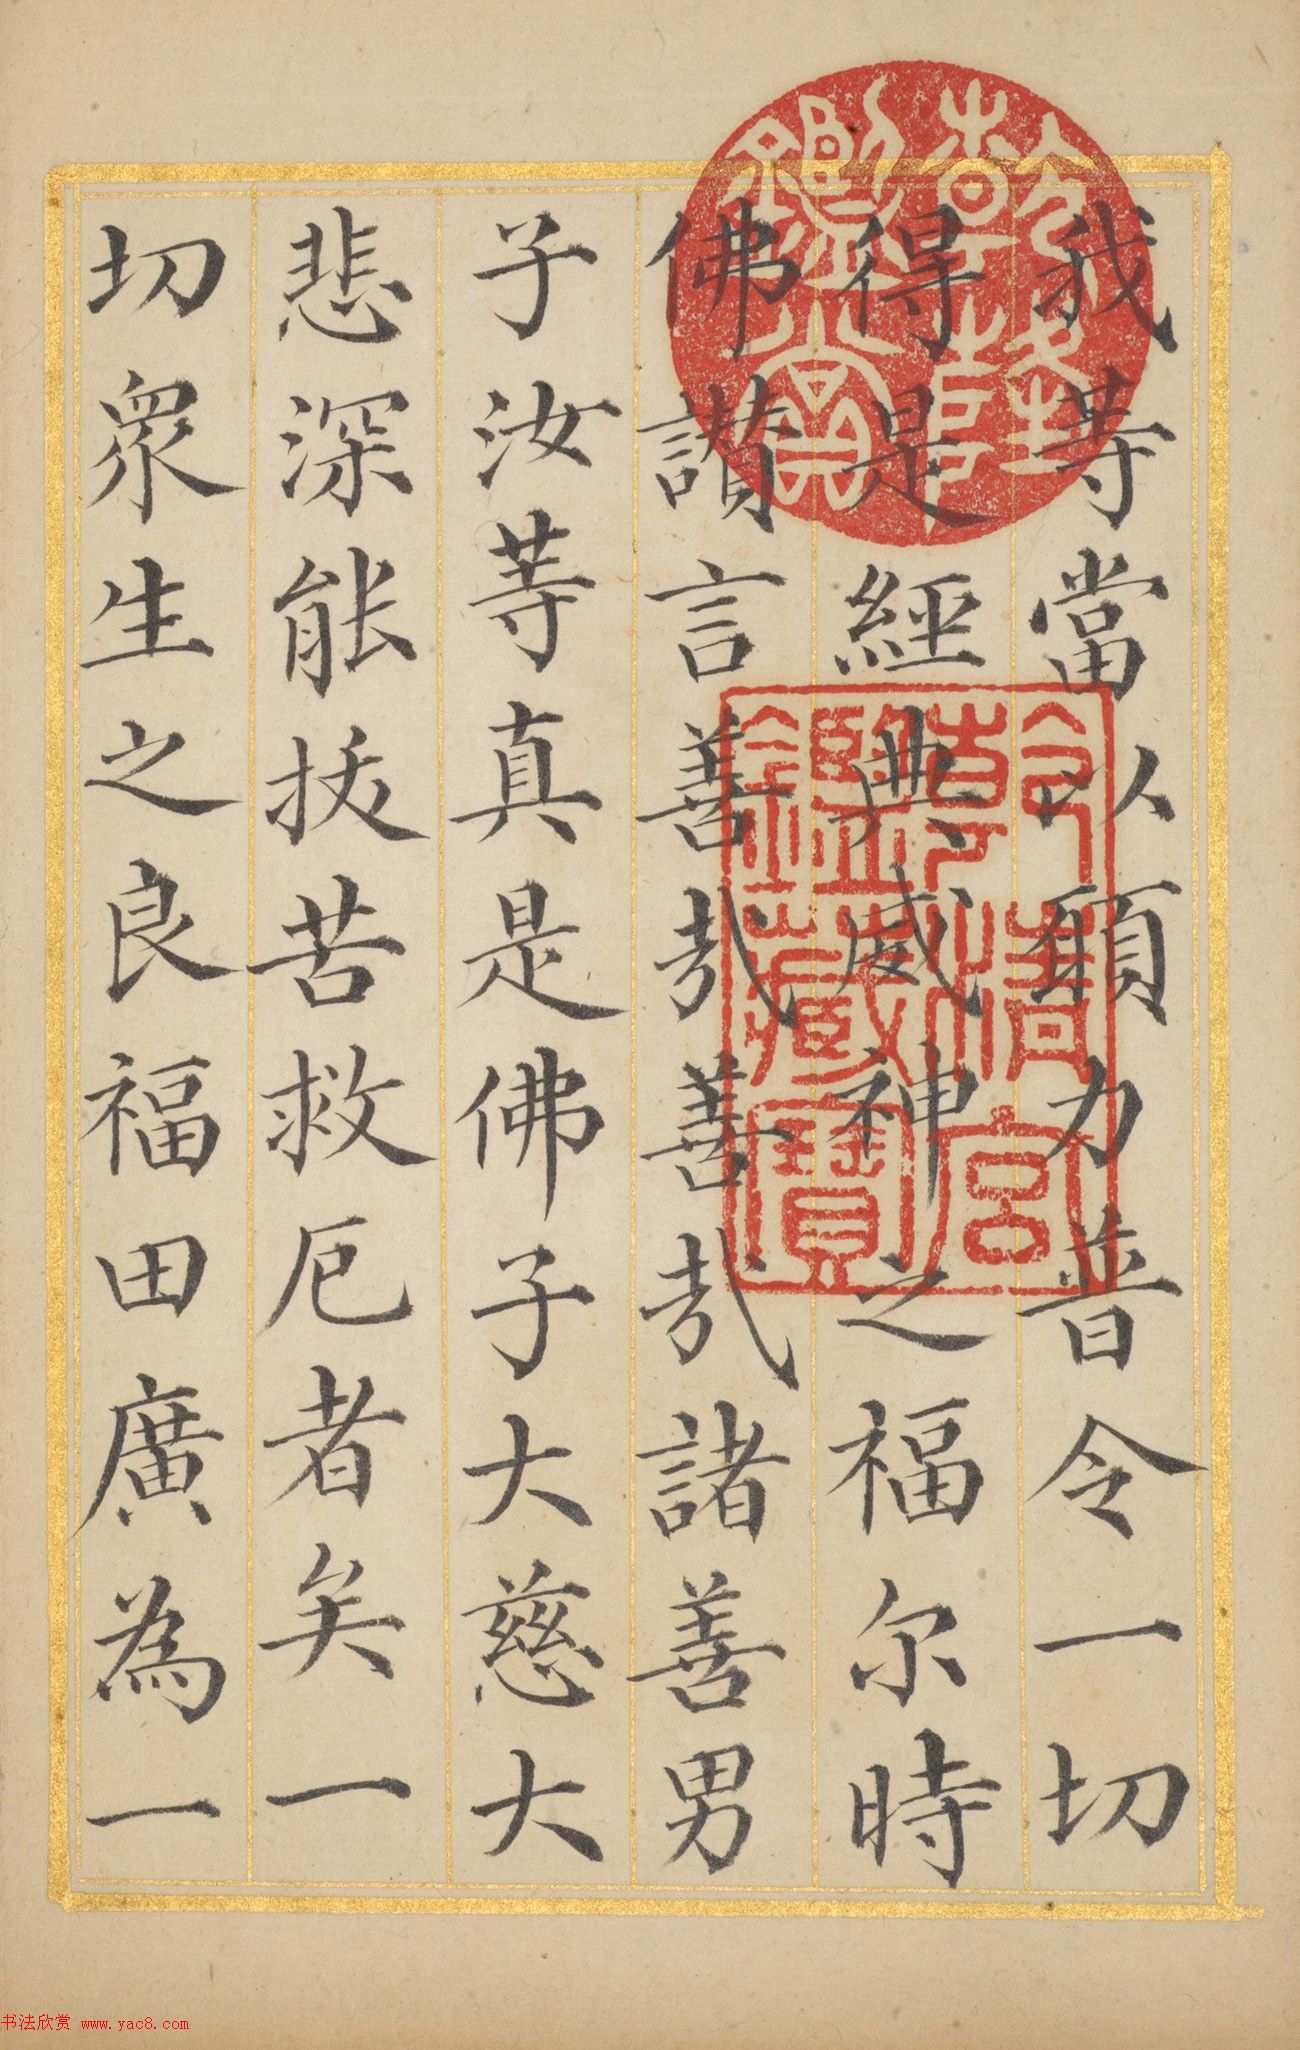 我等當以願力普令一切
得是經典威神之福尔時
佛讃言善哉善哉諸善男
子汝等真是佛子大慈大
悲深能拔苦救厄者矣一
切衆生之良福田廣為一
乾隆御覽之寶
乾清宮鑒藏寶
书法欣赏 www.yac8.com